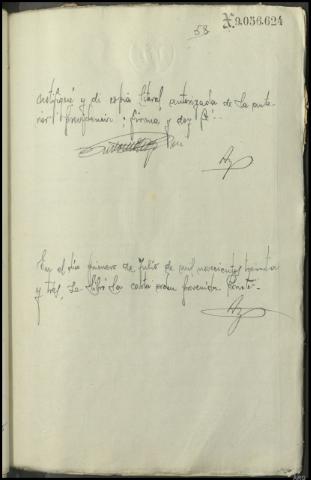 58
X.9.056.624
notifiqué y di copia literal autorizada de la ante-
rior providencia; firma y doy fé.-
En el día primero de Julio de mil novecientos treinta
y tres, se libró la carta orden prevenida. Consté.-